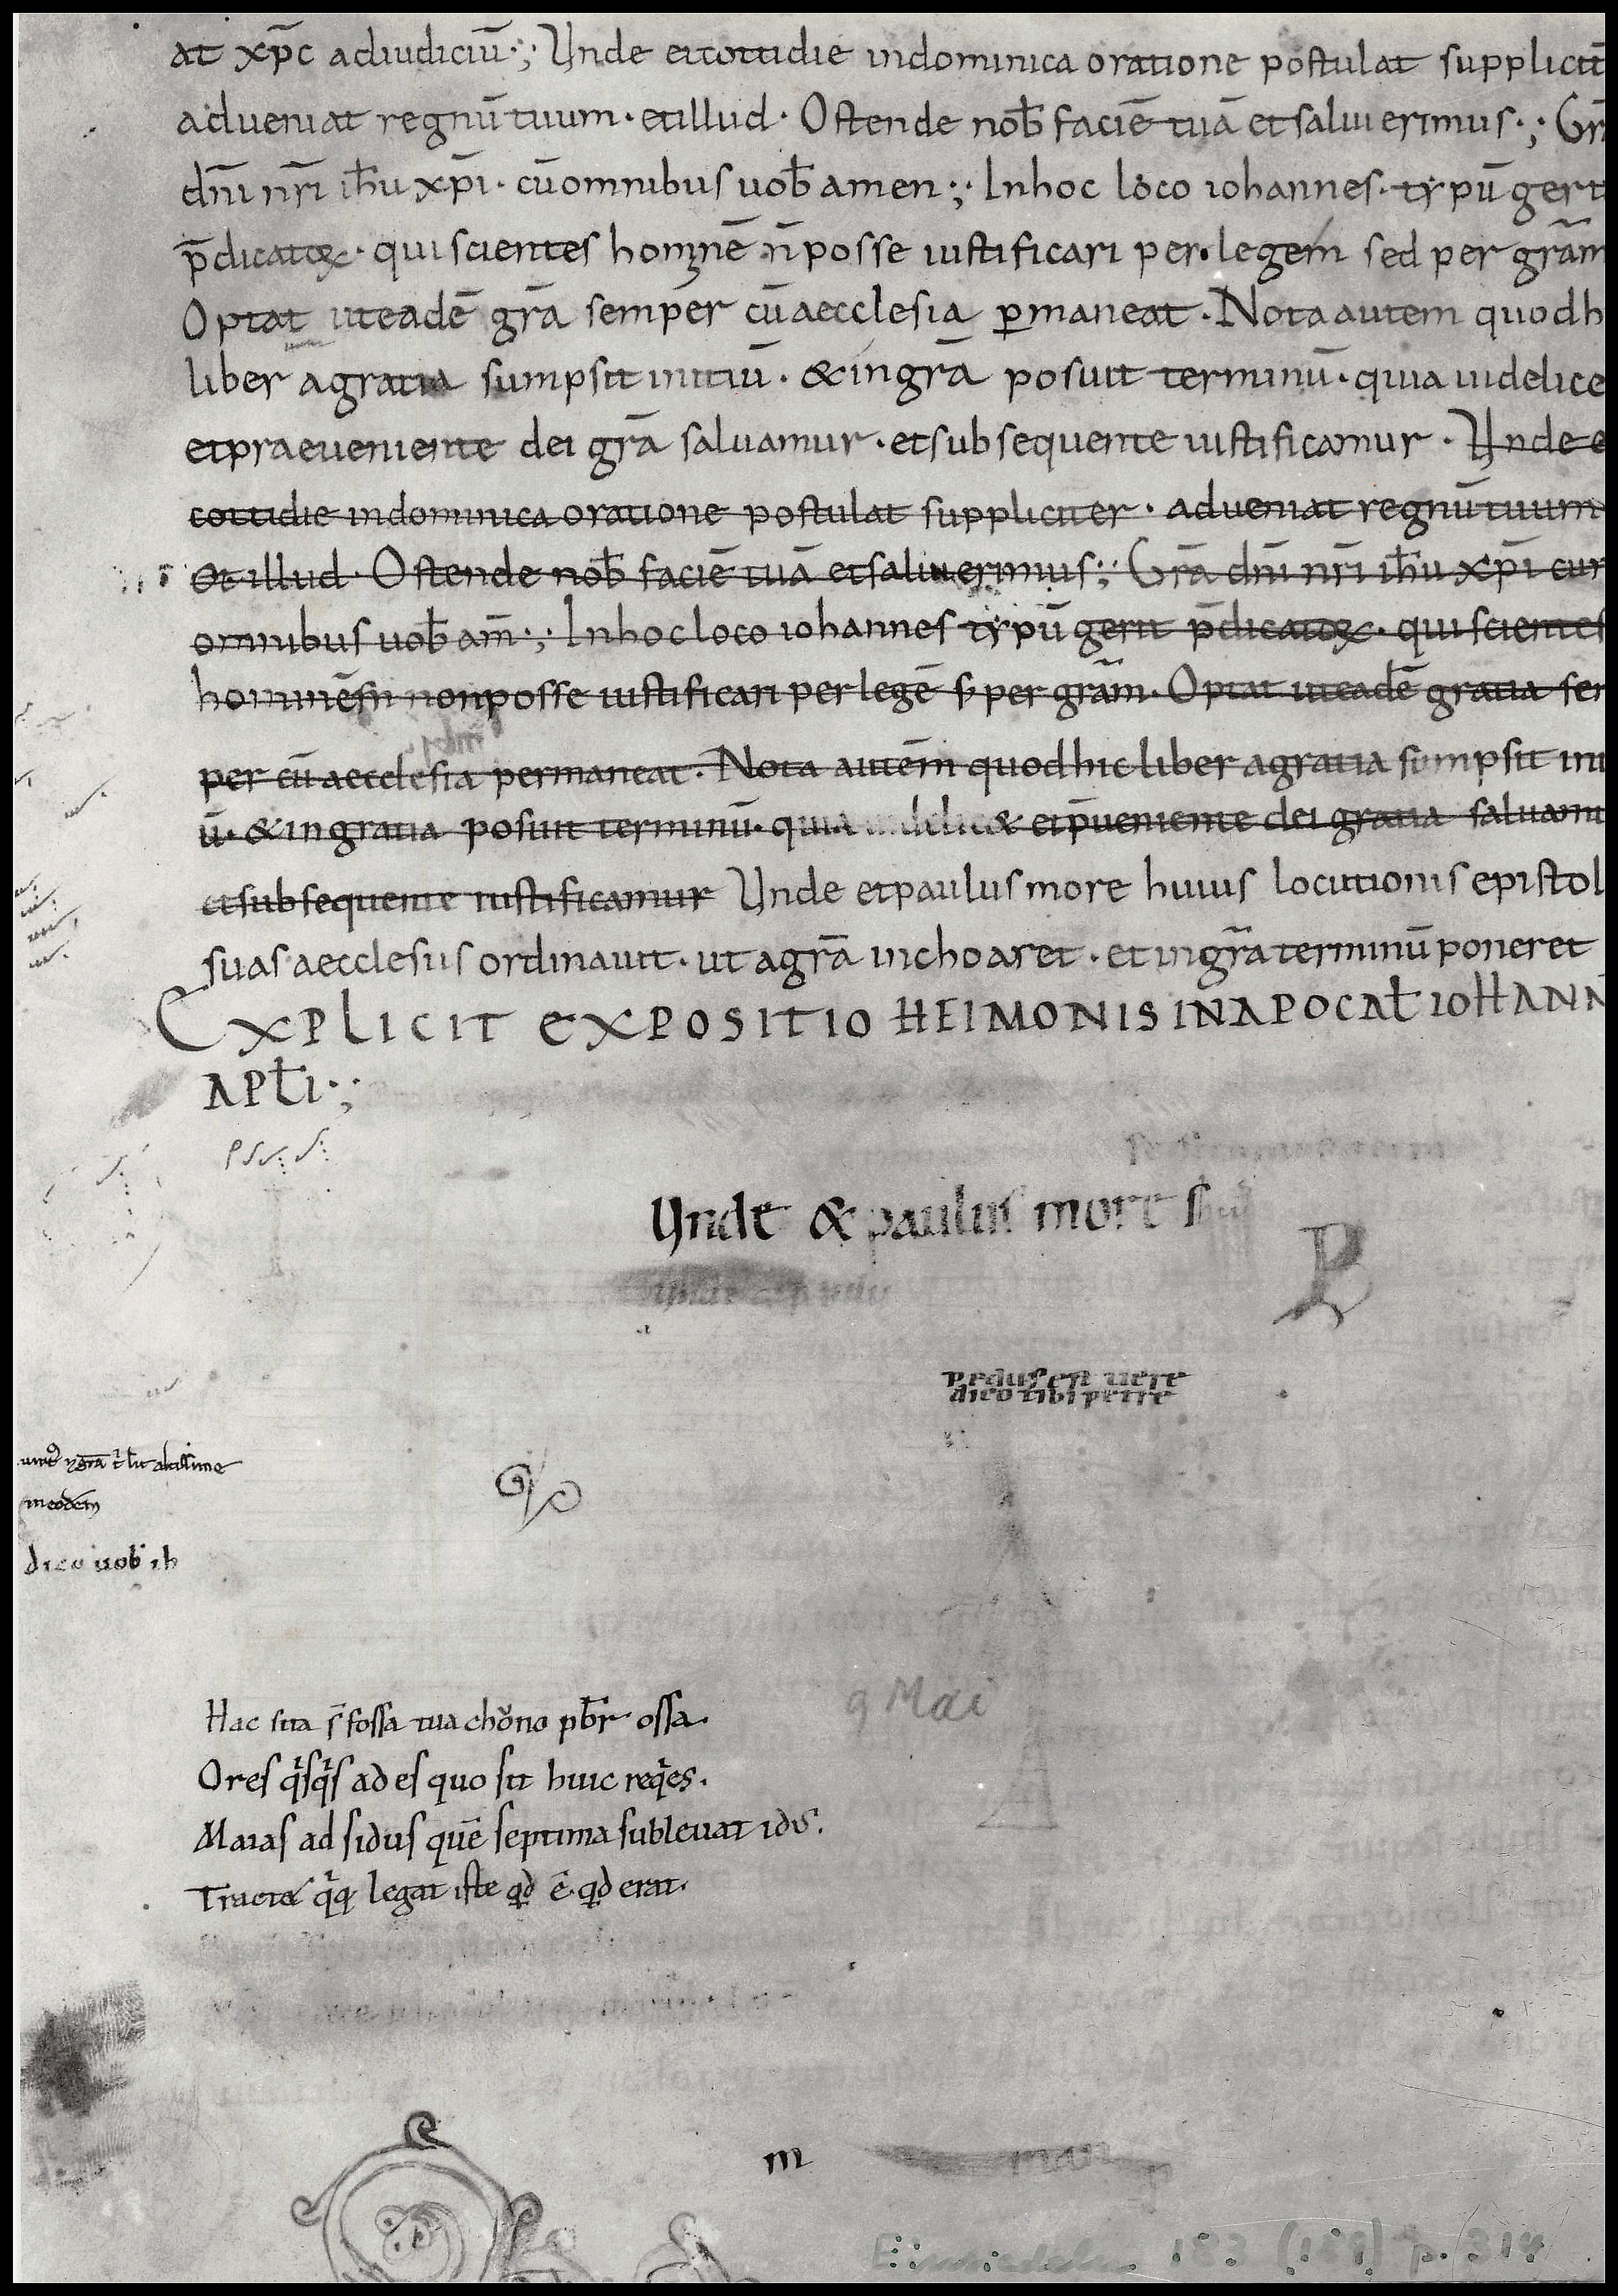 at xp̄c adiudiciū·; Unde etcottidie indominica oratione postulat supplicit̄
adueniat regnū tuum· etillud· Ostende nob̄ faciē tuā etsalui erimus·; Gr̄
dn̄i nr̄i ih̄u xp̄i· cū omnibus uob̄ amen·; Inhoc loco iohannes· typū gerit
p̄dicatoꝝ· qui scientes hominē n̄ posse iustificari per·legem sed per grām
Optat ut eadē grā semper cū aecclesia ꝑmaneat· Nota autem quod h
liber agratia sumpsit initiū· & in grā posuit terminū· quia uidelice
etpraeueniente dei grā saluamur· etsubsequente iustificamur· Unde e
cottidie indominica oratione postulat suppliciter· adueniat regnū tuum
Et illud· Ostende nob̄ faciē tuā etsalui erimus·; Grā dn̄i nr̄i ih̄u xp̄i cum
omnibus uob̄ am̄·; Inhoc loco iohannes typū gerit p̄dicatoꝝ· qui scientes
hominē nonposse iustificari per legē s; per grām· Optat ut eadē gratia sem
per cū aecclesia permaneat· Nota autem quod hic liber agratia sumpsit initi
ū· & in gratia posuit terminū· quia uidelic& etp̄ueniente dei gratia saluamu
etsubsequente iustificamur Unde etpaulus more huius locutionis epistol
suas aecclesiis ordinauit· ut agrā inchoaret· et ingrā terminū poneret
EXPLICIT EXPOSITIO HEIMONIS IN APOCAL̄ IOHANN
APL̄I·;
Unde & paulus more
P
pedus est uere
dico tibi petre
altissime
dico uob̄ ih
Hac sita s̄ fossa tua chǒno pb̄r ossa.
Ores qͥsqͥs ad es quo sit huic reqͥes.
9 Mai
Maias ad sidus quē septima subleuat idꝰ.
Tracta qͥqꝫ legat iste qd ē· qd erat.
m
Einsiedeln 183 (189) p. 314